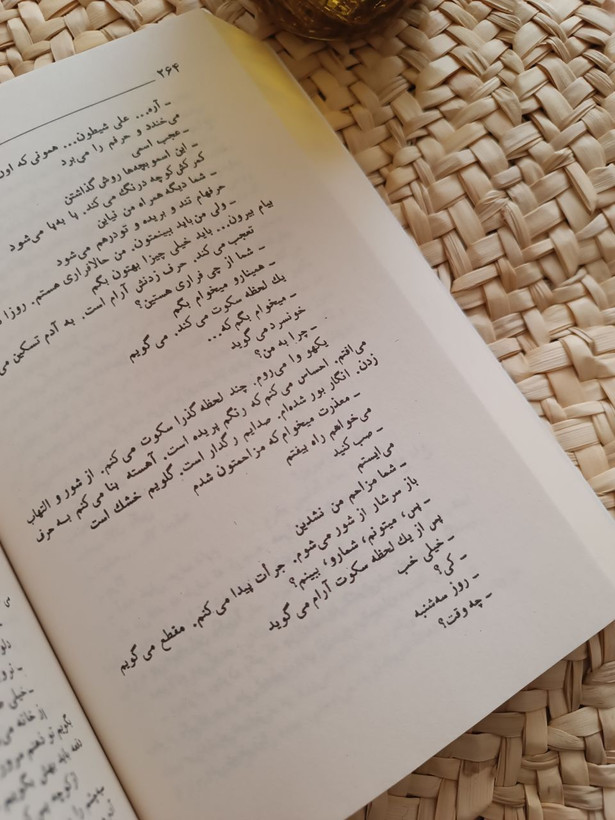 ۲۶۴
ـ آره... علی شیطون... همونی که اون
می‌خندد و حرفم را می‌برد
ـ عجب اسمی
ـ این اسمو بچه‌ها روش گذاشتن
کمرکش کوچه درنگ می‌کند. پا به‌پا می‌شود
ـ شما دیگه همراه من نیاین
حرفهام تند و بریده و تودرهم می‌شود
ـ ولی من باید ببینمتون. من حالا فراری هستم. روزا
بیام بیرون... باید خیلی چیزا بهتون بگم
تعجب می‌کند. حرف زدنش آرام است. به آدم تسکین می
ـ شما از چی فراری هستین؟
ـ همینارو میخوام بگم
یك لحظه سکوت می‌کند. می‌گویم
ـ میخوام بگم که...
خونسرد می‌گوید
ـ چرا به من؟
یکهو وا می‌روم. چند لحظه گذرا سکوت می‌کنم. از شور و التهاب
می‌افتم. احساس می‌کنم که رنگم پریده است. آهسته بنا می‌کنم به حرف
زدن. انگار بور شده‌ام. صدایم رگدار است. گلویم خشك است
ـ معذرت میخوام که مزاحمتون شدم
می‌خواهم راه بیفتم
ـ صب کنید
می‌ایستم
ـ شما مزاحم من نشدین
باز سرشار از شور می‌شوم. جرأت پیدا می‌کنم. مقطع می‌گویم
ـ پس، میتونم، شمارو، ببینم؟
پس از یك لحظه سکوت آرام می‌گوید
ـ خیلی خب
ـ کی؟
ـ روز سه‌شنبه
ـ چه وقت؟